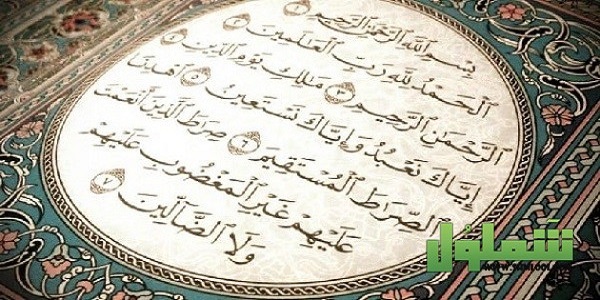 بِسْمِ ٱللَّهِ ٱلرَّحْمَٰنِ ٱلرَّحِيمِ ١
ٱلْحَمْدُ لِلَّهِ رَبِّ ٱلْعَٰلَمِينَ ٢
ٱلرَّحْمَٰنِ ٱلرَّحِيمِ ٣ مَٰلِكِ يَوْمِ ٱلدِّينِ ٤
إِيَّاكَ نَعْبُدُ وَإِيَّاكَ نَسْتَعِينُ ٥ ٱهْدِنَا
ٱلصِّرَٰطَ ٱلْمُسْتَقِيمَ ٦ صِرَٰطَ ٱلَّذِينَ أَنْعَمْتَ
عَلَيْهِمْ غَيْرِ ٱلْمَغْضُوبِ عَلَيْهِمْ
وَلَا ٱلضَّآلِّينَ ٧
شَملول